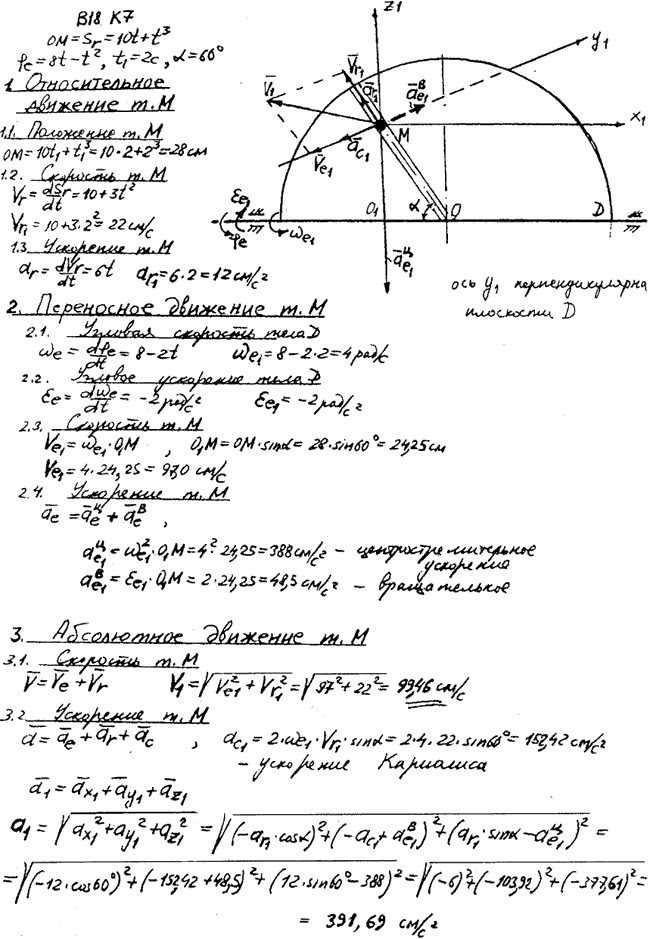 В18 К7
ОМ=Sr=10t+t³
φe=8t-t², t₁=2c, α=60°
1 Относительное
движение т.М
1.1. Положение т.М
ОМ=10t₁+t₁³=10·2+2³=28см
1.2. Скорость т.М
Vr=dSr/dt=10+3t²
Vr₁=10+3·2²=22см/с
1.3. Ускорение т.М
ar=dVr/dt=6t ar₁=6·2=12см/с²
z1
y1
x1
V̄r₁
V̄₁
ār₁
āᵉ₁ᴮ
M
āc₁
V̄e₁
εe₁
φe
ωe₁
O₁
α
O
D
āᵉ₁ц
ось y₁ перпендикулярна
плоскости D
2. Переносное движение т.М
2.1. Угловая скорость тела D
ωe=dφe/dt=8-2t ωe₁=8-2·2=4рад/с
2.2. Угловое ускорение тела D
εe=dωe/dt=-2рад/с² εe₁=-2рад/с²
2.3. Скорость т.М
Ve₁=ωe₁·O₁M , O₁M=OM·sinα=28·sin60°=24,25см
Ve₁=4·24,25=97,0 см/с
2.4. Ускорение т.М
āe=āeц+āeв ,
ae₁ц=ωe₁²·O₁M=4²·24,25=388см/с² - центростремительное
ускорения
ae₁в=εe₁·O₁M=2·24,25=48,5см/с² - вращательное
3. Абсолютное движение т.М
3.1. Скорость т.М
V̄=V̄e+V̄r V₁=√(Ve₁²+Vr₁²)=√(97²+22²)=99,46 см/с
3.2 Ускорение т.М
ā=āe+ār+āc , ac₁=2·ωe₁·Vr₁·sinα=2·4·22·sin60°=152,42 см/с²
- ускорение Кариалиса
ā₁=āx₁+āy₁+āz₁
a₁=√(ax₁²+ay₁²+az₁²)=√((-ar₁·cosα)²+(-ac₁+ae₁в)²+(ar₁·sinα-ae₁ц)²)=
=√((-12·cos60°)²+(-152,42+48,5)²+(12·sin60°-388)²)=√((-6)²+(-103,92)²+(-377,61)²)=
= 391,69 см/с²